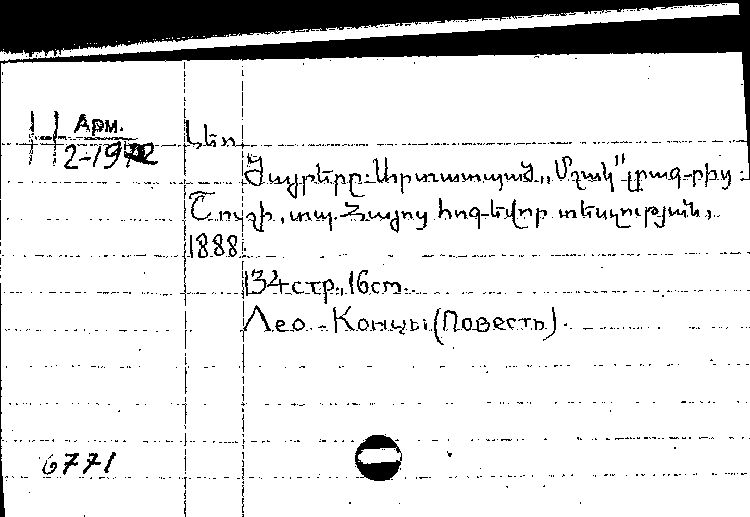 Н Арм.
2-1972
Լեո
Ծայրերը. Արտատպած „Մշակ" լրագրից.
Շուշի, տպ. Հայոց հոգևոր տեսչության,
1888.
134 стр., 16 см.
Лео. - Концы (Повесть).
6771